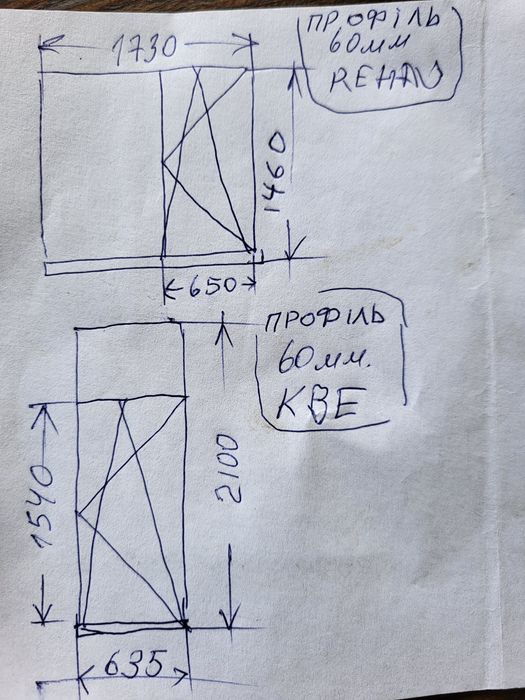 1730
ПРОФІЛЬ
60мм
REHAU
1460
650
ПРОФІЛЬ
60мм.
КВЕ
1540
2100
635